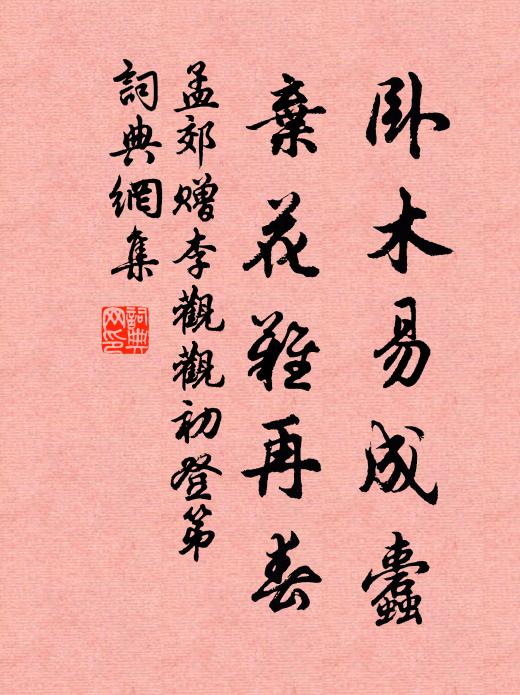 卧木易成蠹
棄花難再春
孟郊贈李觀觀初登第
詞典網集
詞典网印